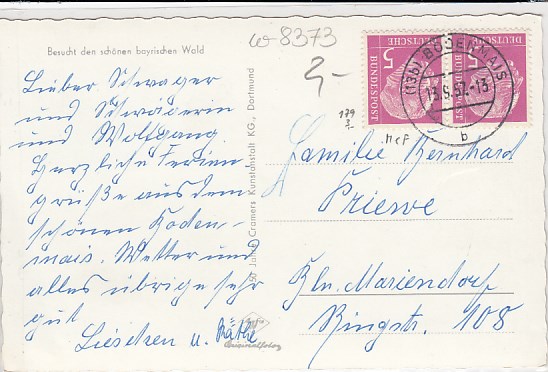 Besucht den schönen bayrischen Wald
w-8373
2,-
179
DEUTSCHE BUNDESPOST 5
DEUTSCHE BUNDESPOST 5
(13b) BODENMAIS
13.9.57.-13
b
Lieber Schwager
und Schwägerin
und Wolfgang.
Herzliche Ferien
grüße aus dem
schönen Boden-
mais. Wetter und
alles übrige sehr
gut
Lieschen u. Käthe
50 Jahre Cramers Kunstanstalt KG., Dortmund
Familie Bernhard
Priewe
Bln. Mariendorf
Ringstr. 108
Originalfoto